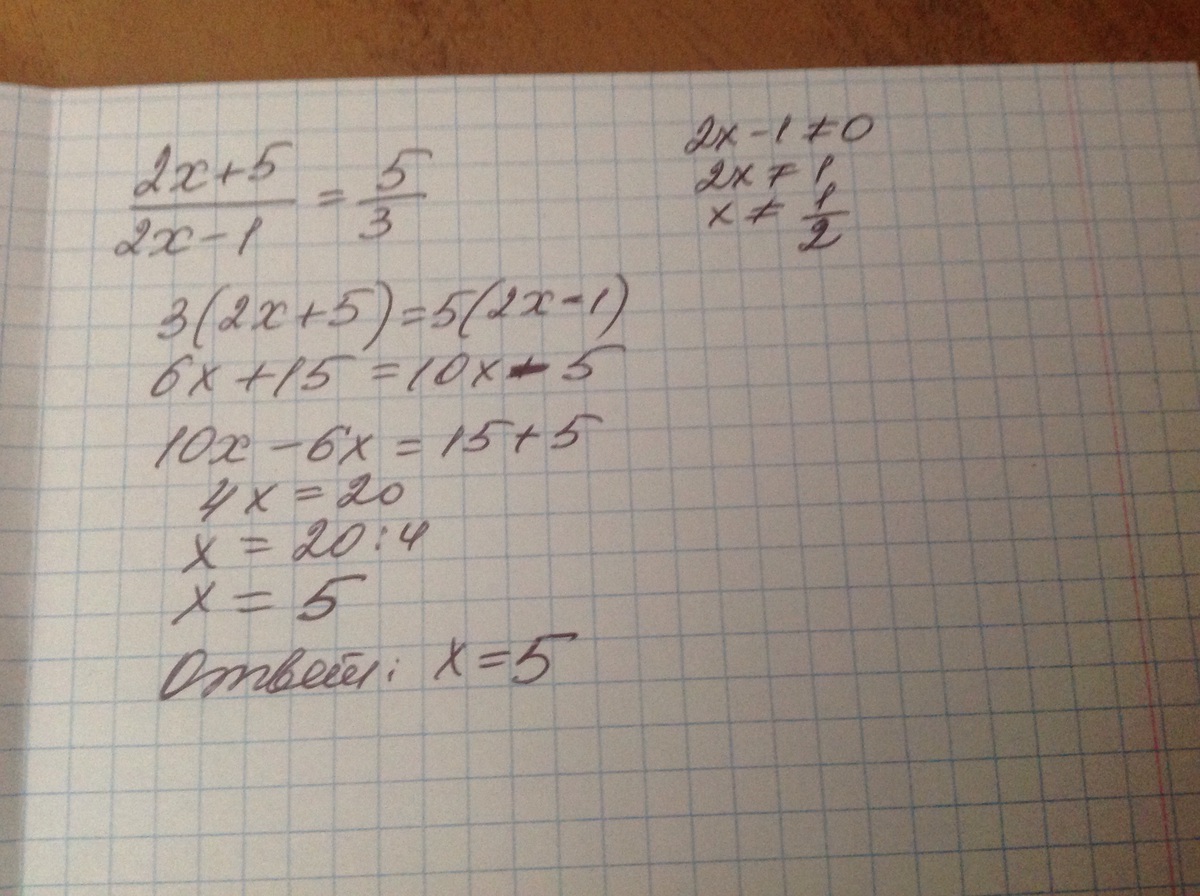 2x+5/2x-1 = 5/3
2x-1≠0
2x≠1
x≠1/2
3(2x+5)=5(2x-1)
6x+15=10x-5
10x-6x=15+5
4x=20
x=20:4
x=5
Ответ: x=5